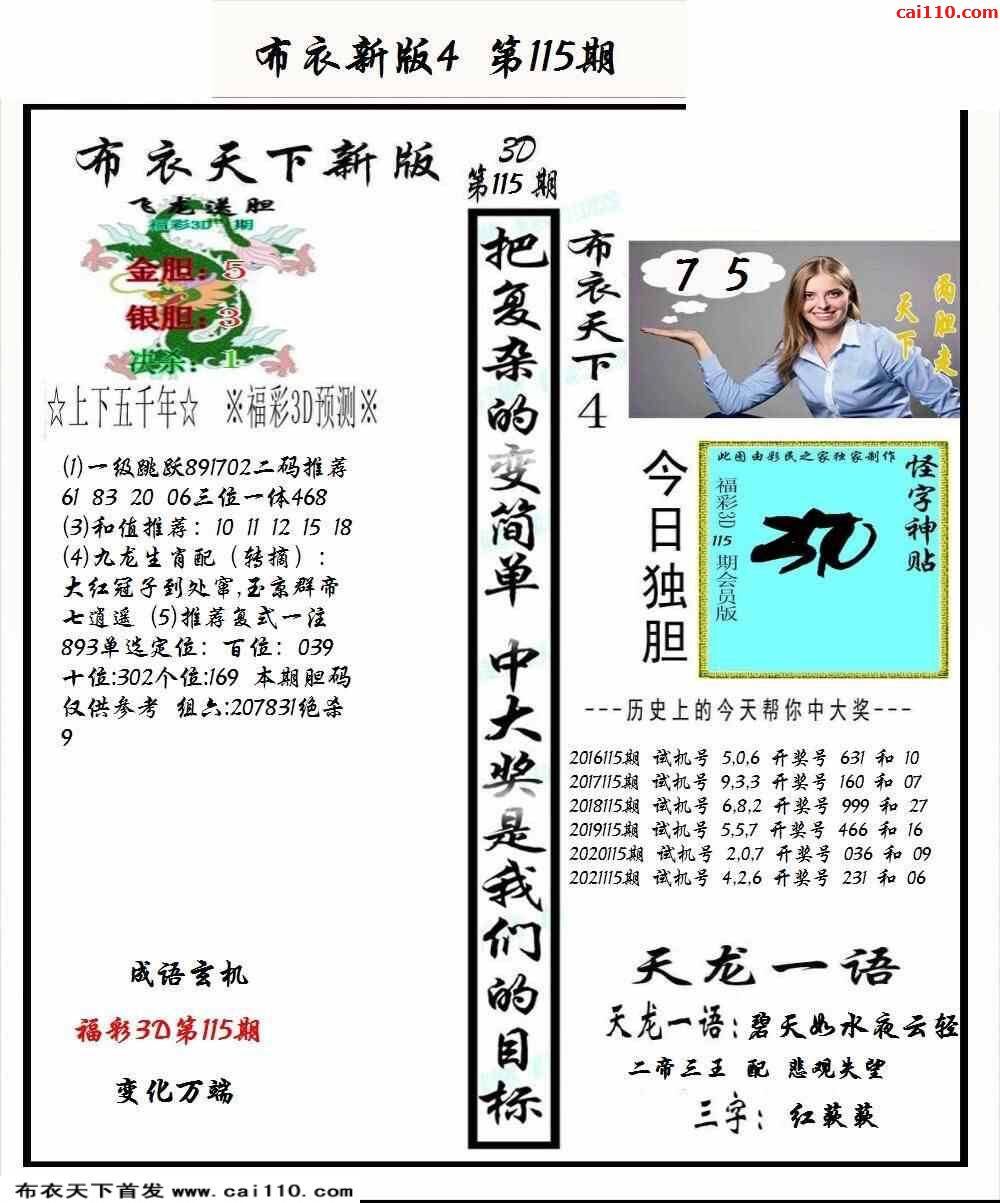 cai110.com
布衣新版4 第115期
布衣天下新版
飞龙送胆
福彩3D 期
金胆：5
银胆：3
决杀：1
☆上下五千年☆ ※福彩3D预测※
(1)一级跳跃891702二码推荐
61 83 20 06三位一体468
(3)和值推荐：10 11 12 15 18
(4)九龙生肖配（转摘）：
大红冠子到处窜,玉京群帝
七逍遥 (5)推荐复式一注
893单选定位：百位：039
十位:302个位:169 本期胆码
仅供参考 组六:207831绝杀
9
成语玄机
福彩3D第115期
变化万端
3D
第115期
把复杂的变简单 中大奖是我们的目标
布衣天下4
7 5
两胆走
天下
今日独胆
此图由彩民之家独家制作
怪字神贴
福彩3D 115 期会员版
---历史上的今天帮你中大奖---
2016115期 试机号 5,0,6 开奖号 631 和 10
2017115期 试机号 9,3,3 开奖号 160 和 07
2018115期 试机号 6,8,2 开奖号 999 和 27
2019115期 试机号 5,5,7 开奖号 466 和 16
2020115期 试机号 2,0,7 开奖号 036 和 09
2021115期 试机号 4,2,6 开奖号 231 和 06
天龙一语
天龙一语：碧天如水夜云轻
二帝三王 配 悲观失望
三字： 红蔌蔌
布衣天下首发 www.cai110.com